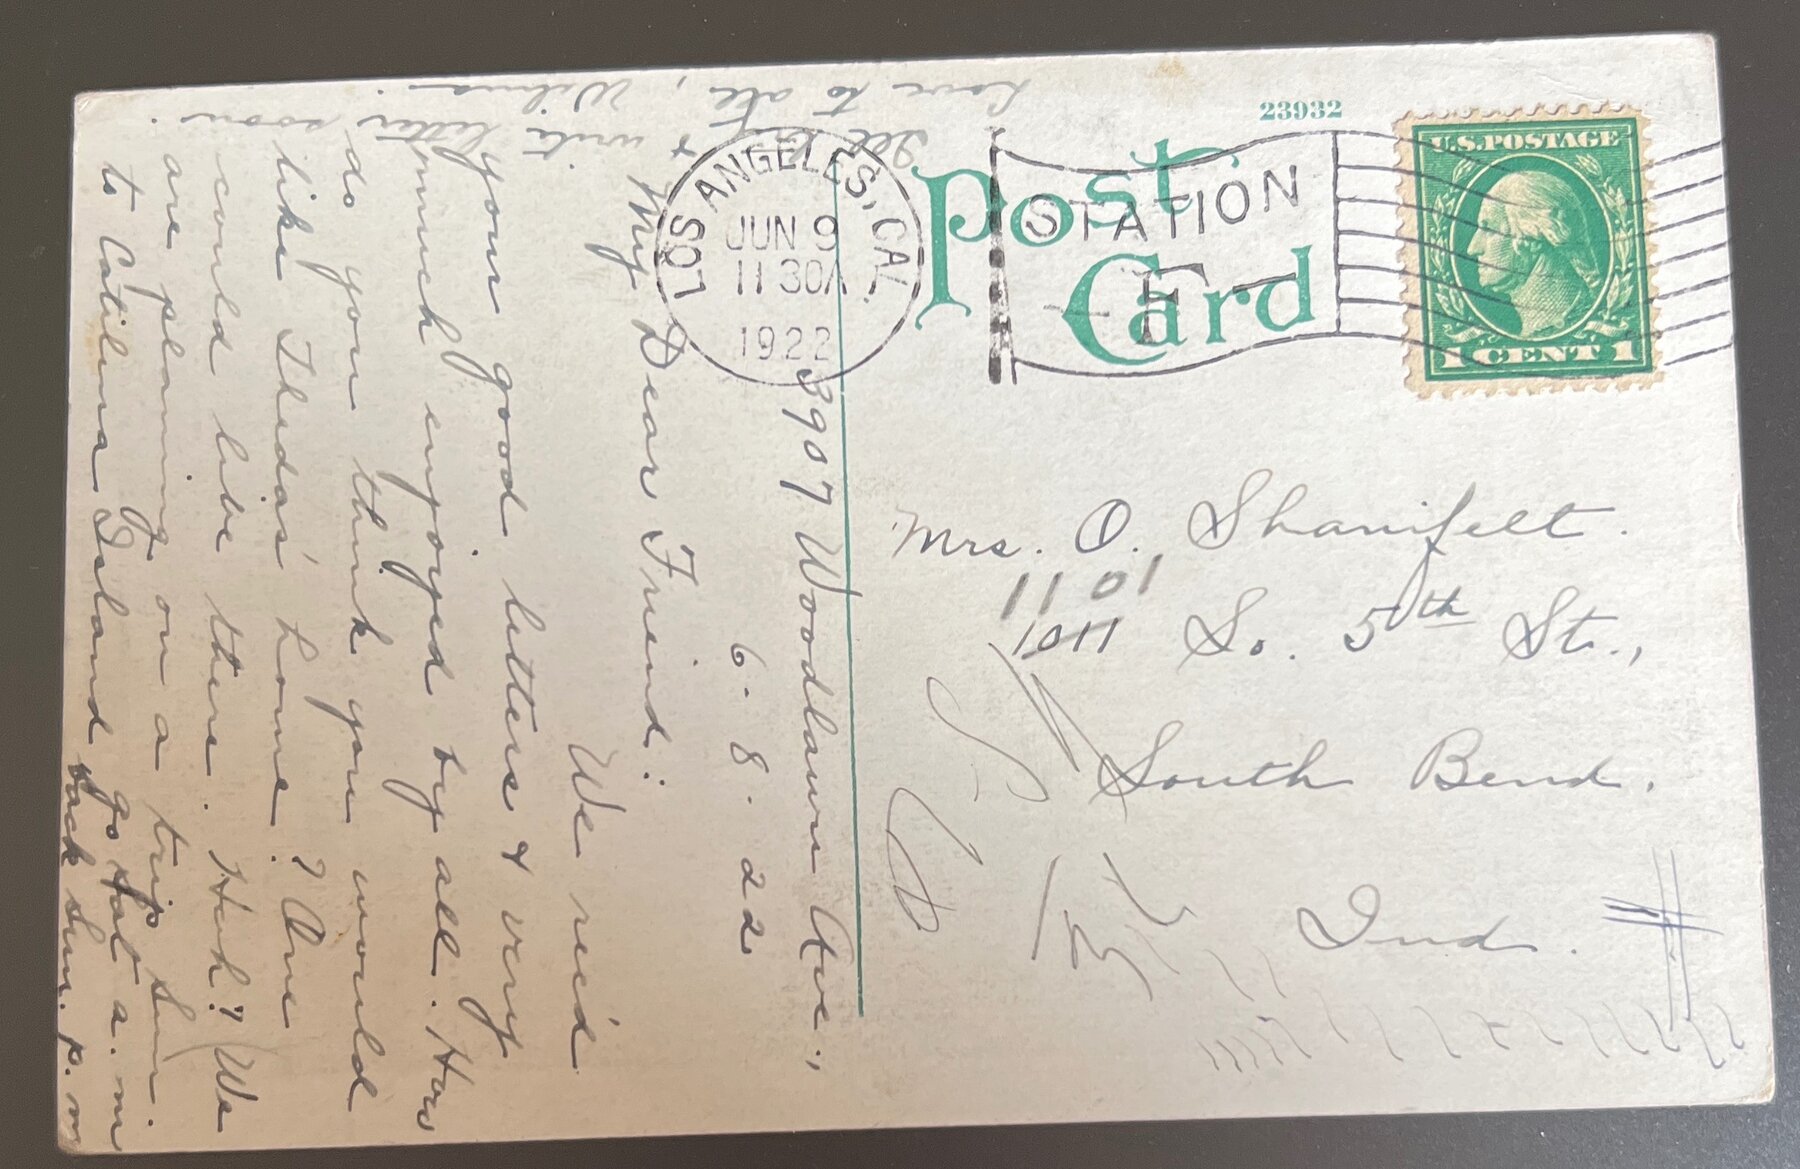 23932
Post
Card
LOS ANGELES, CAL.
JUN 9
11 30A
1922
STATION
F
U.S. POSTAGE
1 CENT 1
3907 Woodlawn Ave.,
6-8-22
My Dear Friend:
We rec'd
your good letters & very
much enjoyed by all. How
do you think you would
like Thedas' home? One
could live there. Huh? (We
are planing on a trip Sun.
to Catilina Island go Sat a.m
back Sun. p.m
& write letter soon.
Love to all, Wilma.
Mrs. O. Shanifelt.
1101
1011 So. 5th St.,
South Bend.
Ind.